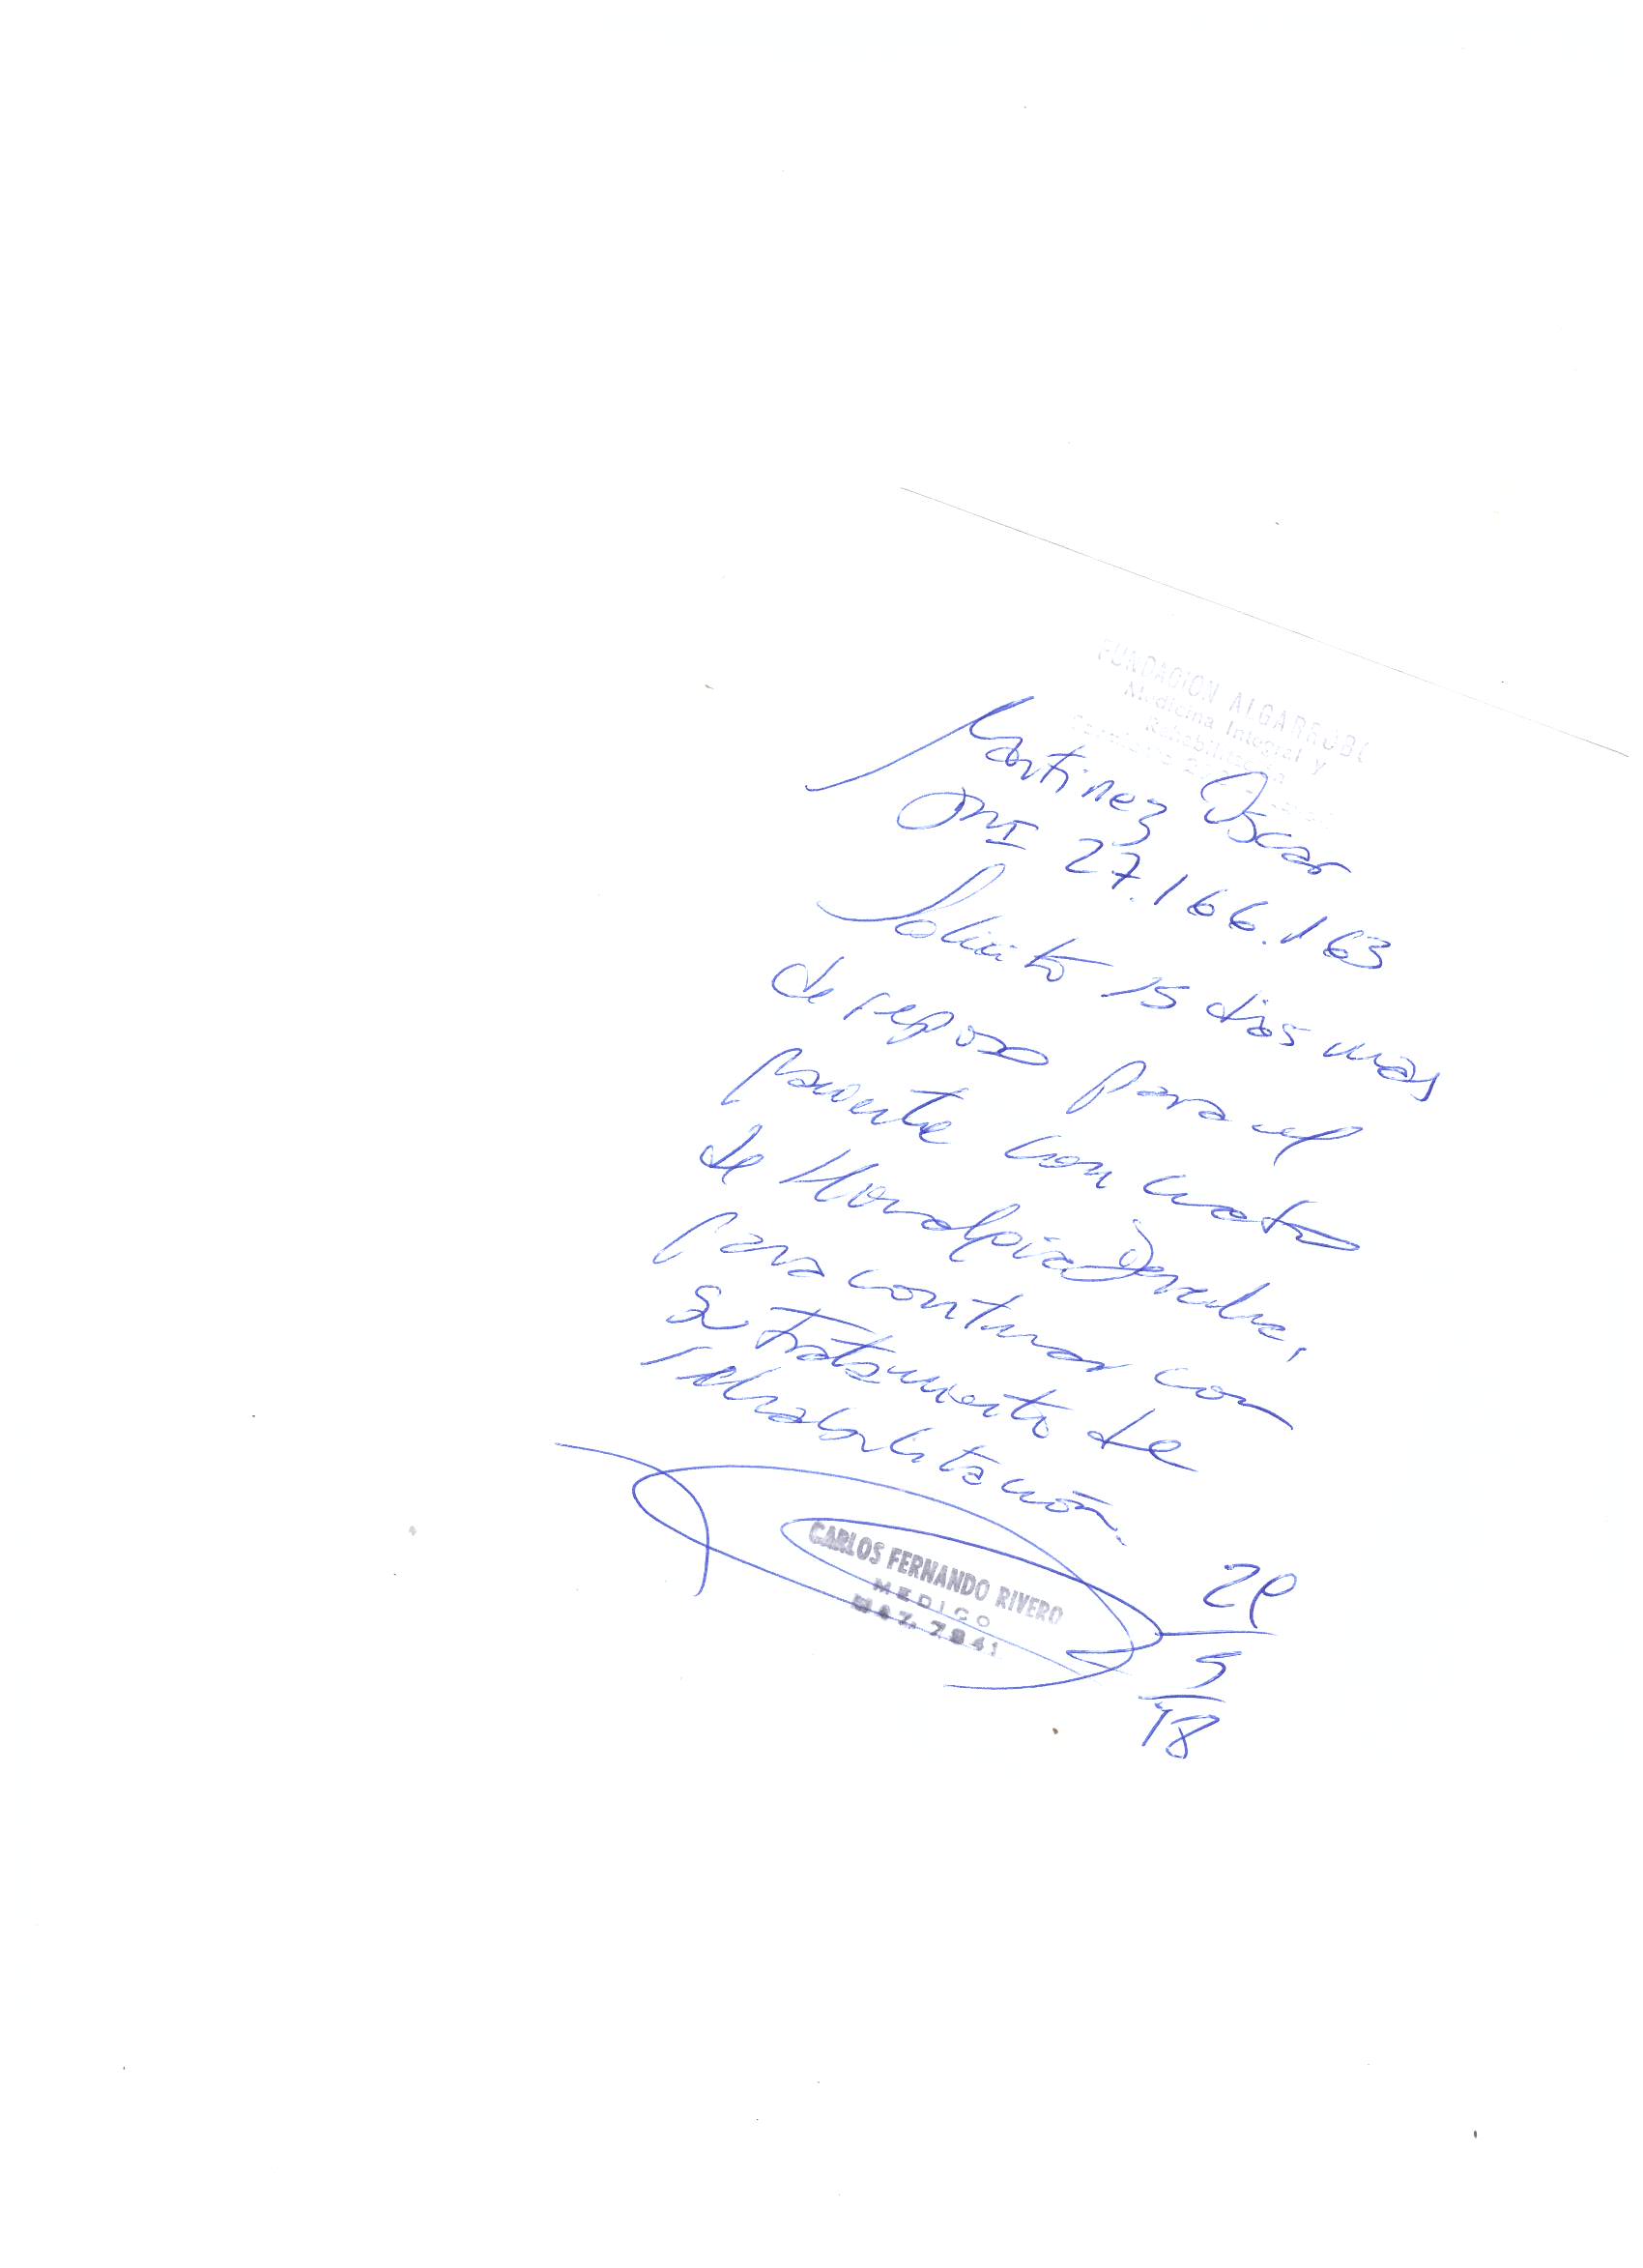 FUNDACION ALGARROBO
Medicina Integral y
Rehabilitación
Martinez Oscar
DNI 27.166.163
Solicito 15 dias mas
de reposo para el
paciente con cuadro
de Derecha,
para continuar con
su tratamiento de
rehabilitación.
CARLOS FERNANDO RIVERO
MEDICO
MAT. 7841
29
5
18